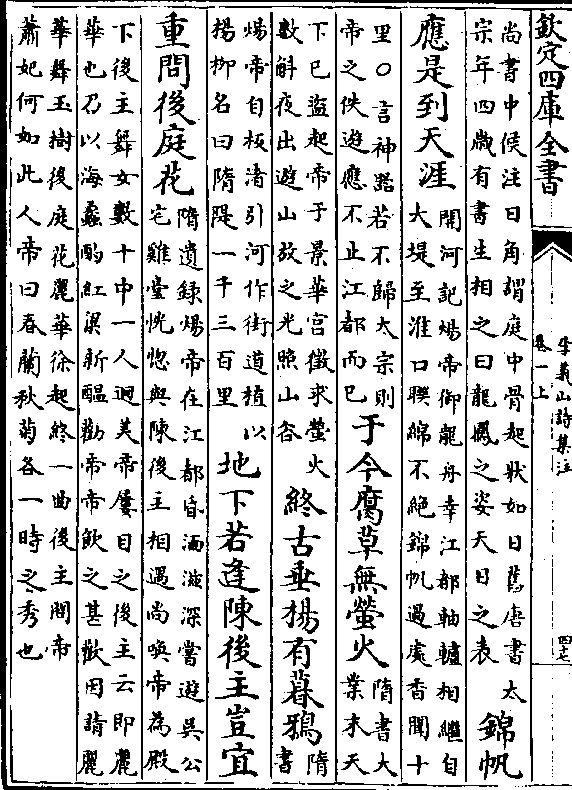 欽定四庫全書
李義山詩集注
卷一上
四七
尚書中侯注日角謂庭中骨起狀如日舊唐書太
宗年四歲有書生相之曰龍鳳之姿天日之表
錦帆
應是到天涯
開河記煬帝御龍舟幸江都軸轤相繼自
大堤至淮口聯綿不絶錦帆過處香聞十
里○言神器若不歸太宗則
帝之佚遊應不止江都而已
于今腐草無螢火
隋書大
業末天
下已盜起帝于景華宮徵求螢火
數斛夜出遊山放之光照山谷
終古垂楊有暮鴉
隋
書
煬帝自板渚引河作街道植以
楊柳名曰隋隄一千三百里
地下若逢陳後主豈宜
重問後庭花
隋遺錄煬帝在江都昏湎滋深嘗遊吳公
宅雞臺恍惚與陳後主相遇尚喚帝為殿
下後主舞女數十中一人迥美帝屢目之後主云即麗
華也乃以海蠡酌紅梁新醞勸帝帝飲之甚歡因請麗
華舞玉樹後庭花麗華徐起終一曲後主問帝
蕭妃何如此人帝曰春蘭秋菊各一時之秀也